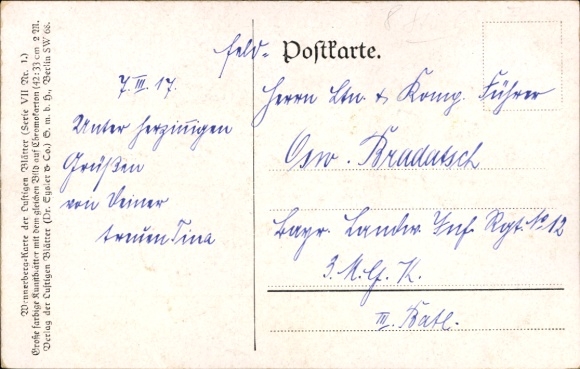 Wennerberg-Karte der Lustigen Blätter (Serie VII Nr. 1.)
Große farbige Kunstblätter mit dem gleichen Bild auf Chromokarton (42:33 cm 2 M.
Verlag der Lustigen Blätter (Dr. Eysler & Co.) G. m. b. H., Berlin SW 68.
7. III. 17.
Unter herzinnigen
Grüßen
von Deiner
treuen Tina
Feld-
Postkarte.
Herrn Ltn. & Komp. Führer
Osw. Bradatsch
Bayr. Landw. Inf. Rgt. No 12
3. M. G. K.
III. Batl.